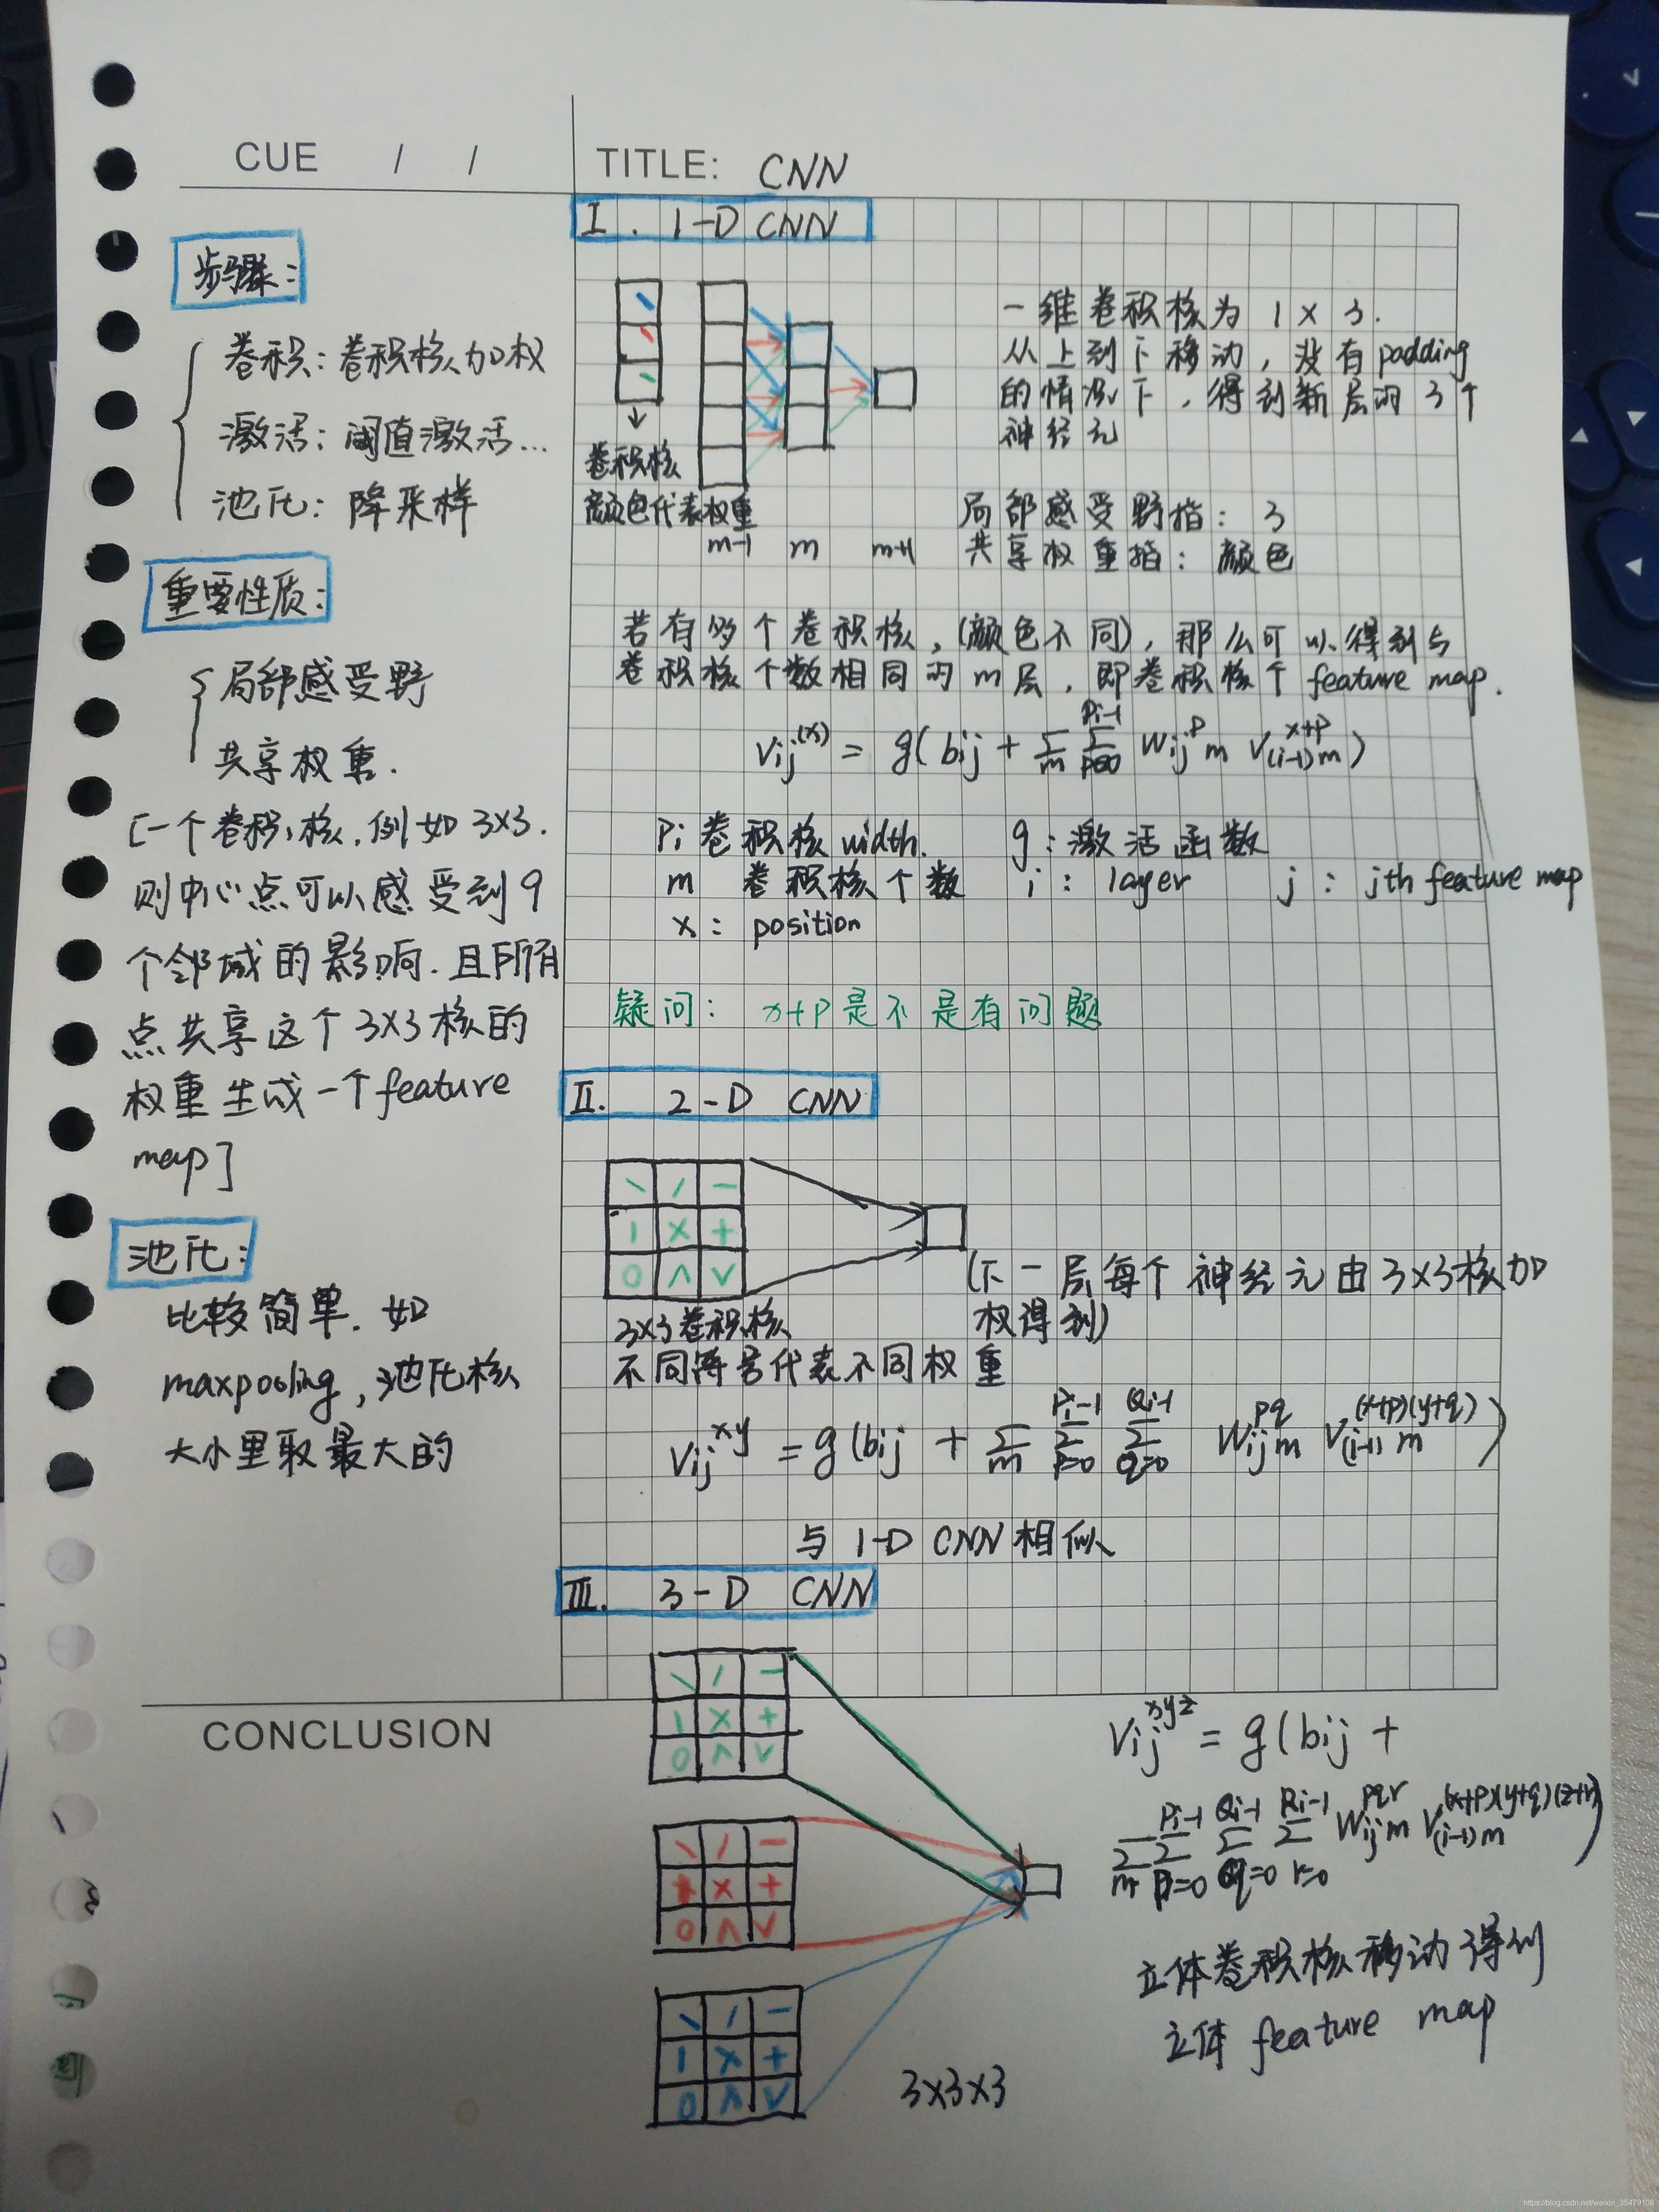 CUE / /
TITLE: CNN
步骤:
卷积: 卷积核加权
激活: 阈值激活...
池化: 降采样
重要性质:
局部感受野
共享权重.
[一个卷积核,例如3×3.
则中心点可以感受到9
个邻域的影响.且所有
点共享这个3×3核的
权重生成一个feature
map]
池化:
比较简单.如
maxpooling,池化核
大小里取最大的
I. 1-D CNN
一维卷积核为1×3.
从上到下移动,没有padding
的情况下,得到新层的3个
神经元
卷积核
颜色代表权重
m-1 m m+1
局部感受野指: 3
共享权重指: 颜色
若有多个卷积核,(颜色不同),那么可以得到与
卷积核个数相同的m层,即卷积核个feature map.
Vij^(x) = g(bij + Σ_m Σ_{p=0}^{Pi-1} Wijm^p V(i-1)m^{x+p})
Pi 卷积核width. g:激活函数
m 卷积核个数 i: layer j: jth feature map
x: position
疑问: x+p是不是有问题
II. 2-D CNN
\ / -
1 × +
0 ∧ ∨
(下一层每个神经元由3×3核加
权得到)
3×3卷积核
不同符号代表不同权重
Vij^xy = g(bij + Σ_m Σ_{P=0}^{Pi-1} Σ_{Q=0}^{Qi-1} Wijm^pq V(i-1)m^{(x+p)(y+q)})
与1-D CNN相似
III. 3-D CNN
\ / -
1 × +
0 ∧ ∨
\ / -
× +
0 ∧ ∨
\ / -
1 × +
0 ∧ ∨
3×3×3
CONCLUSION
Vij^xyz = g(bij +
Σ_m Σ_{p=0}^{Pi-1} Σ_{q=0}^{Qi-1} Σ_{r=0}^{Ri-1} Wijm^pqr V(i-1)m^{(x+p)(y+q)(z+r)})
立体卷积核移动得到
立体 feature map
https://blog.csdn.net/weixin_35479108